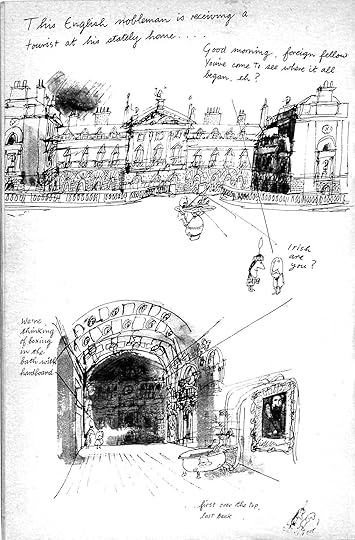 This English nobleman is receiving a
tourist at his stately home . . . .
Good morning, foreign fellow
You've come to see where it all
began, eh?
Irish
are
you?
We're
thinking
of boxing
in the
bath with
hardboard
first over the top,
last back